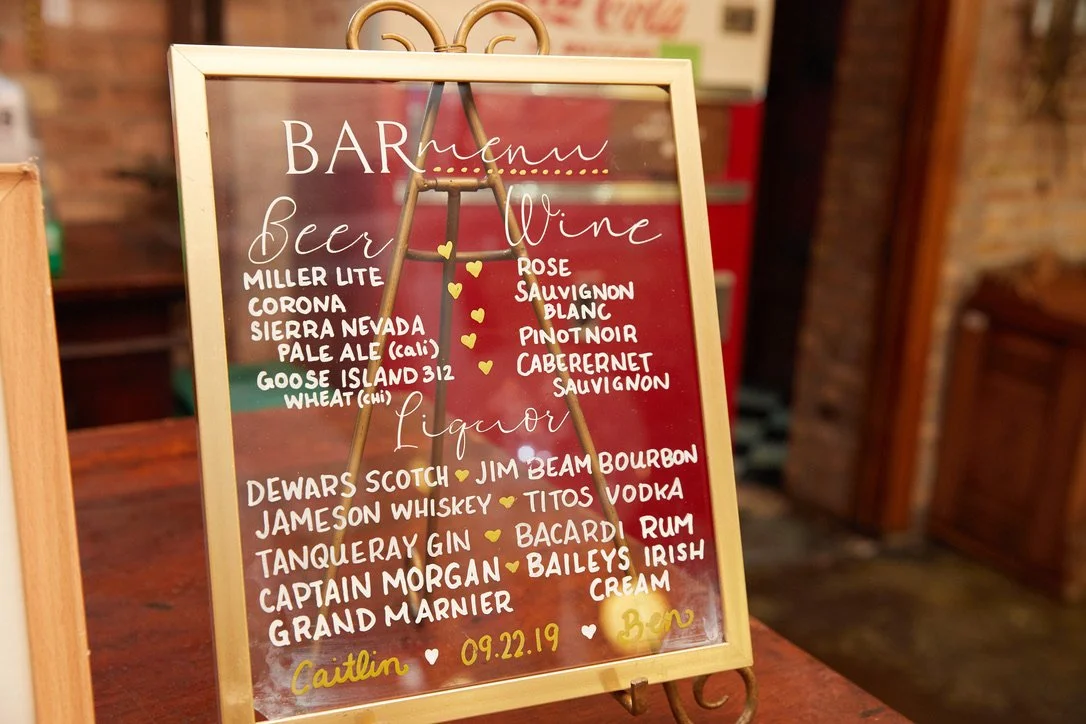 Coca-Cola
BAR menu
Beer
MILLER LITE
CORONA
SIERRA NEVADA
PALE ALE (Cali)
GOOSE ISLAND 312
WHEAT (CHI)
Wine
ROSE
SAUVIGNON
BLANC
PINOTNOIR
CABERERNET
SAUVIGNON
Liquor
DEWARS SCOTCH JIM BEAM BOURBON
JAMESON WHISKEY TITOS VODKA
TANQUERAY GIN BACARDI RUM
CAPTAIN MORGAN BAILEYS IRISH
CREAM
GRAND MARNIER
Caitlin 09.22.19 Ben